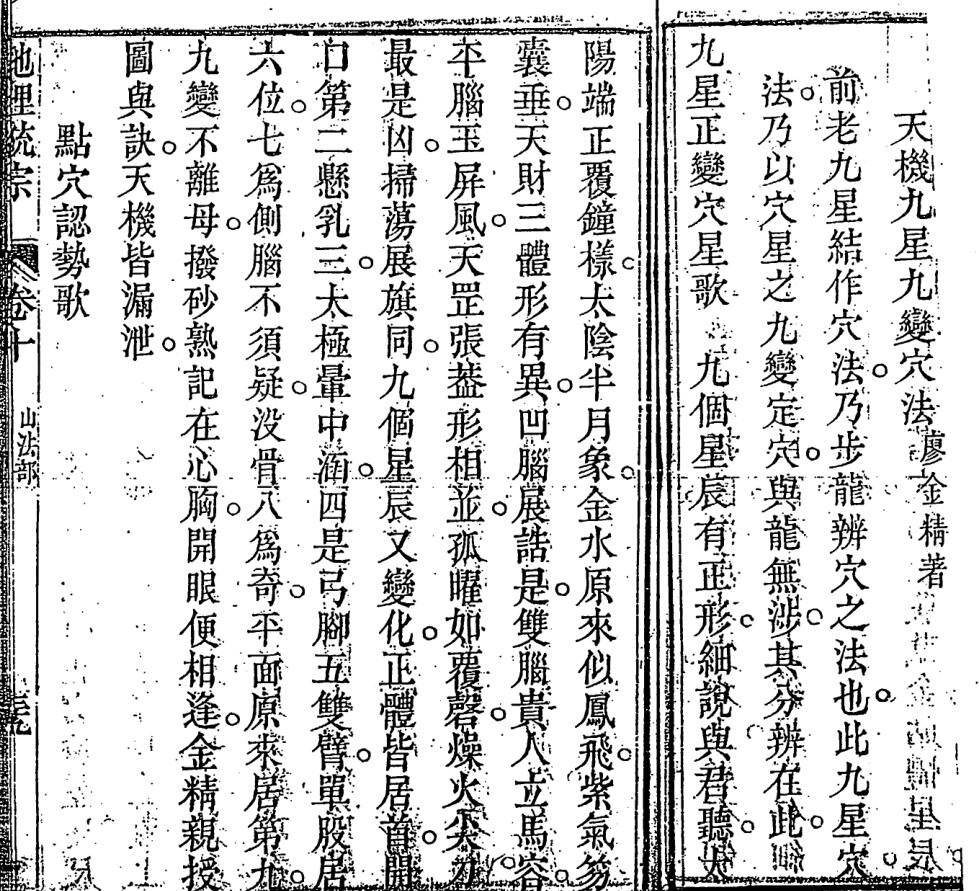 天機九星九變穴法 廖金精著
前老九星結作穴法乃步龍辨穴之法也此九星穴
法乃以穴星之九變定穴與龍無涉其分辨在此
九星正變穴星歌 九個星辰有正形細說與君聽太
陽端正覆鐘樣太陰半月象金水原來似鳳飛紫氣笏
囊垂天財三體形有異凹腦展誥是雙腦貴人立馬容
平腦玉屏風天罡張蓋形相並孤曜如覆磬燥火尖刀
最是凶掃蕩展旗同九個星辰又變化正體皆居首開
口第二懸乳三太極暈中涵四是弓腳五雙臂單股居
六位七為側腦不須疑没骨八為奇平面原來居第九
九變不離母撥砂熟記在心胸開眼便相逢金精親授
圖與訣天機皆漏泄
點穴認勢歌
地理統宗 卷十 山法部